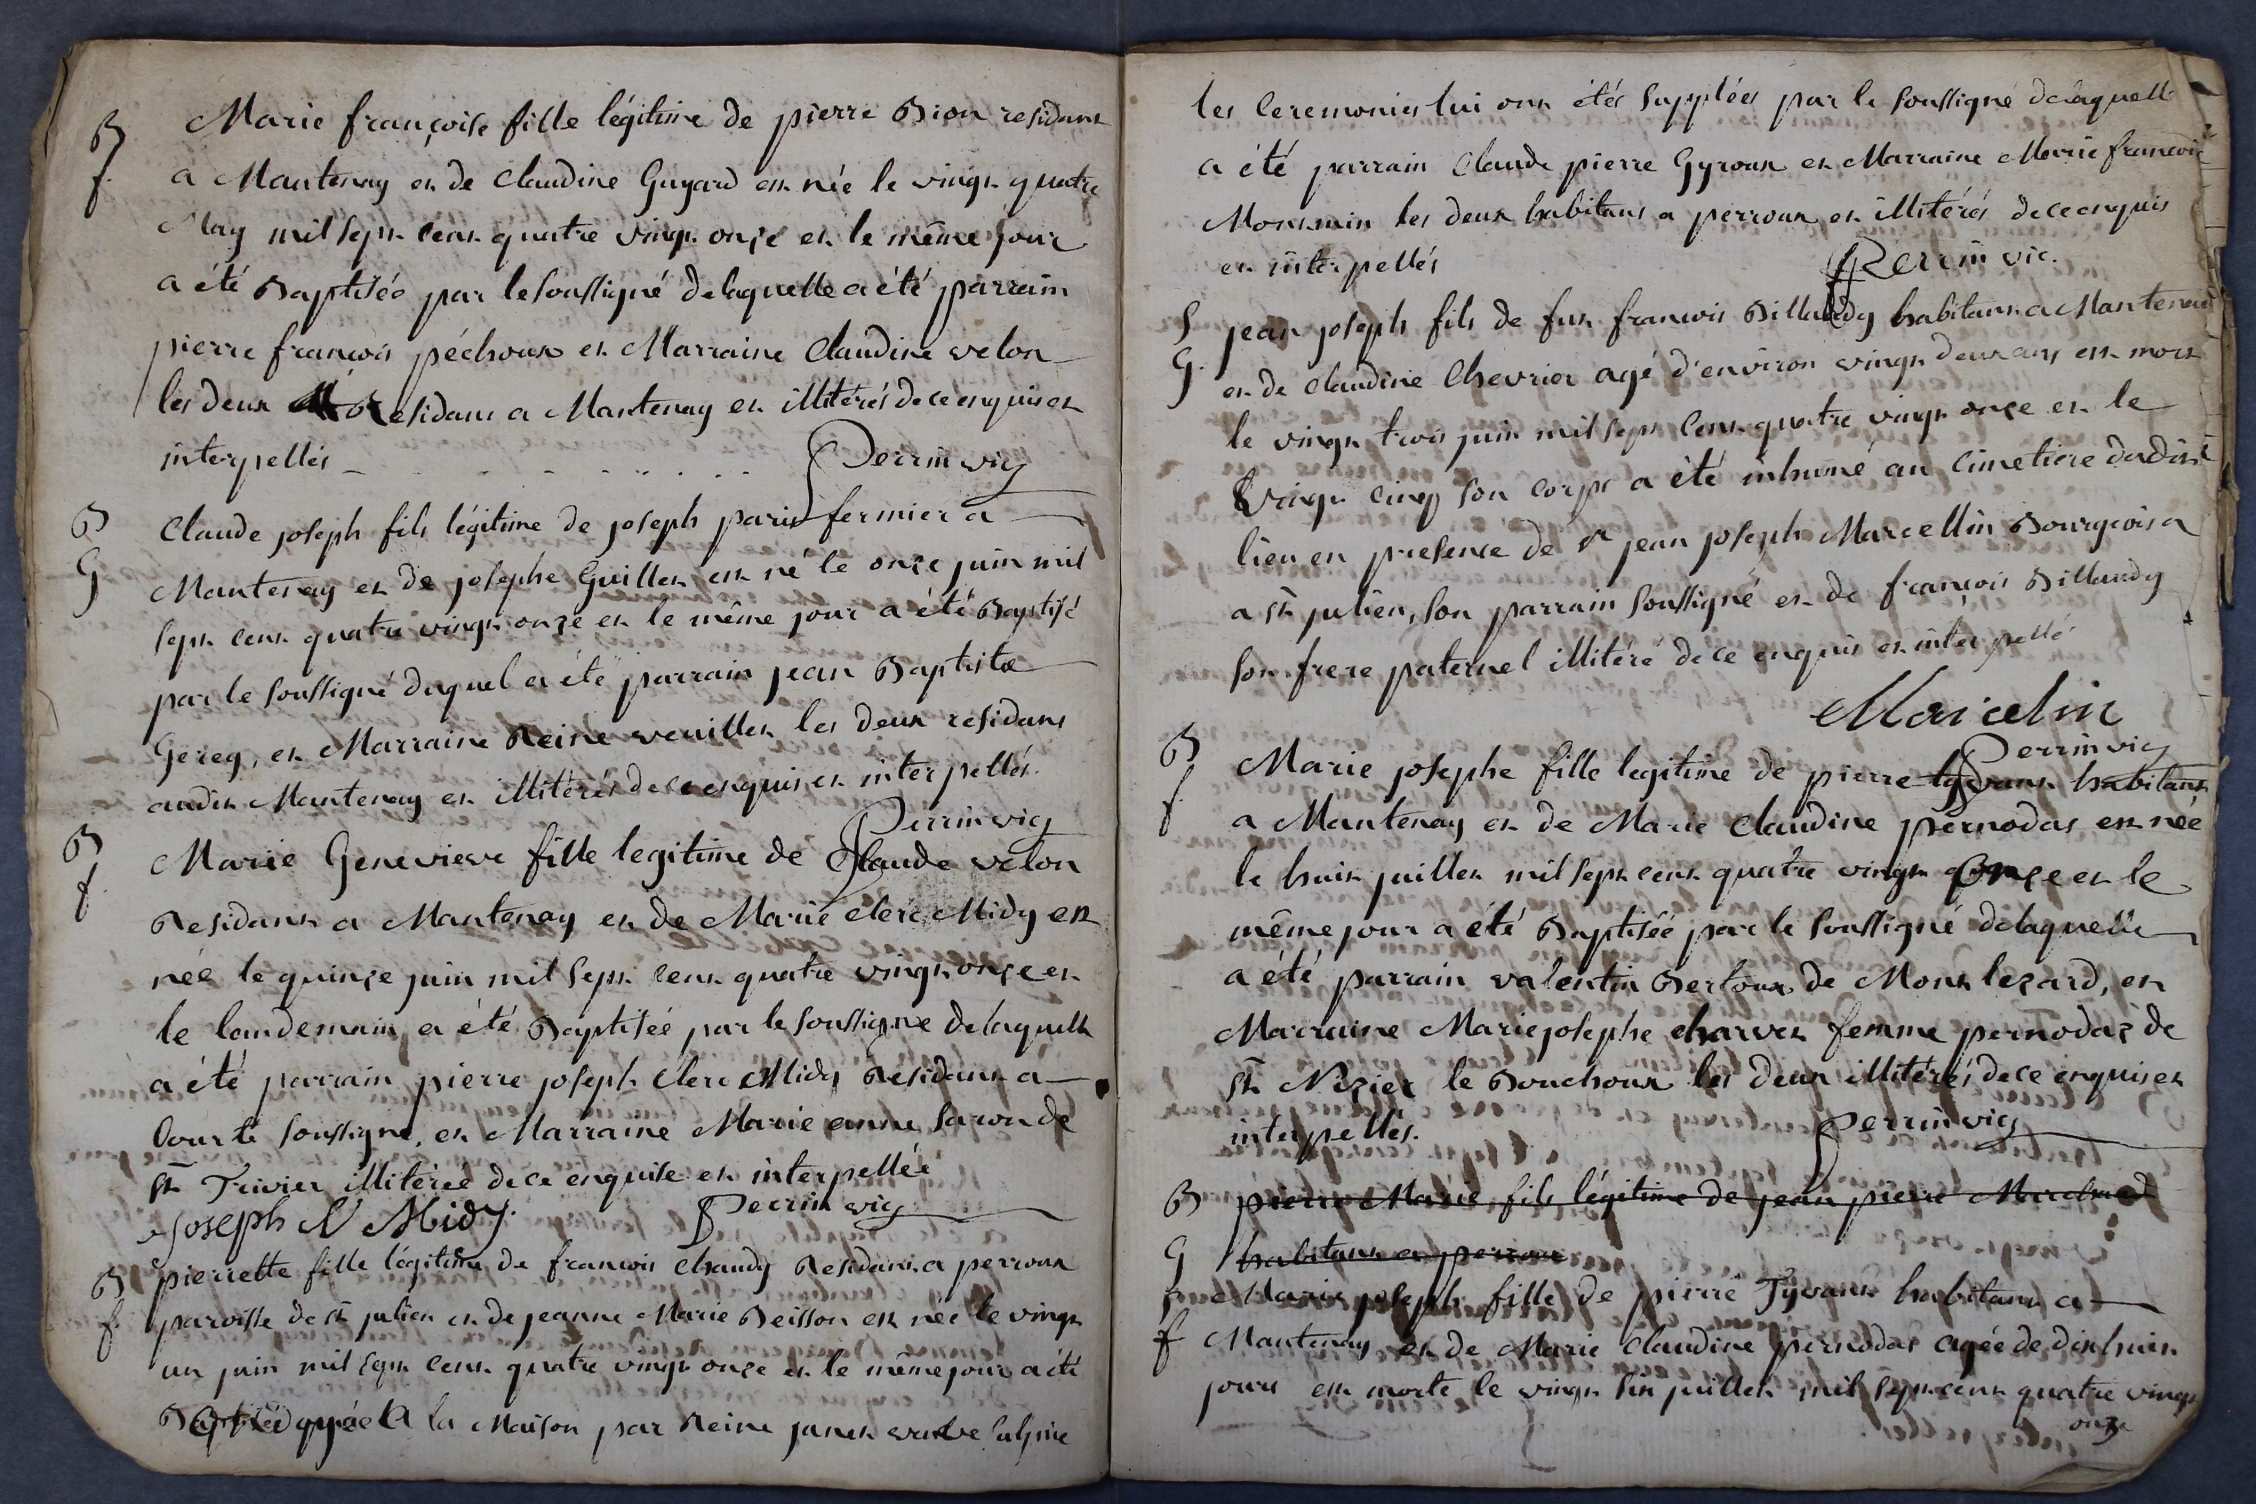 B Marie françoise fille légitime de pierre Bion residant
f. a Mantenay et de claudine Guyard est née le vingt quatre
May mil sept cent quatre vingt onze et le même jour
a été Baptisée par le soussigné delaquelle a été parrain
pierre françois péchoux et Marraine Claudine velon
les deux Residans a Mantenay et illitérés de ce enquis et
interpellés Perrin vic
B Claude joseph fils légitime de joseph paris fermier a
G Mantenay et de josephe Guillet est né le onze juin mil
sept cent quatre vingt onze et le même jour a été Baptisé
par le soussigné duquel a été parrain jean Baptiste
Gereg, et Marraine Reine veuillet les deux residans
audit Mantenay et illitérés de ce enquis et interpellés.
Perrin vic
B Marie Genevieve fille legitime de Claude velon
f. Residant a Mantenay et de Marie clerc Midy est
née le quinze juin mil sept cent quatre vingt onze et
le landemain a été Baptisée par le soussigné delaquelle
a été parrain pierre joseph Clerc Midy Residant a
Courte soussigné, et Marraine Marie anne saron de
St Trivier illitérée de ce enquise et interpellée
joseph C Midy. Perrin vic
B pierrette fille légitime de francois chaudy Residant a perroux
f. paroisse de st julien et de jeanne Marie Beisson est née le vingt
un juin mil sept cent quatre vingt onze et le même jour a été
a la Maison par Reine janet veuve sulpice
les Ceremonies lui ont étés supplées par le soussigné delaquelle
a été parrain Claude pierre Gyroux et Marraine Marie francoise
Monmin les deux habitans a perroux et illitérés de ce enquis
et interpellés Perrin vic.
S jean joseph fils de fut francois Billaudy habitant a Mantenay
G. et de claudine Chevrier agé d'environ vingt deux ans est mort
le vingt trois juin mil sept cent quatre vingt onze et le
vingt cinq son corps a été inhumé au Cimetiere dudit
lieu en presence de sr jean joseph Marcellin Bourgeois a
a st julien, son parrain soussigné et de françois Billaudy
son frere paternel illitéré de ce enquis et interpellé
Marcelin
Perrin vic
B Marie josephe fille legitime de pierre tyvant habitant
f. a Mantenay et de Marie Claudine pernodas est née
le huit juillet mil sept cent quatre vingt onze et le
même jour a été Baptisée par le soussigné delaquelle
a été parrain valentin Bertoux de Mont lezard, et
Marraine Marie josephe charvet femme pernodas de
st Nizier le Bouchoux les deux illitérés de ce enquis et
interpellés. Perrin vic
B pierre Marie fils légitime de jean pierre
G habitant a perroux
S Marie joseph fille de pierre Tyvant habitant a
f Mantenay et de Marie Claudine pernodas agée de dixhuit
jours est morte le vingt six juillet mil sept cent quatre vingt
onze